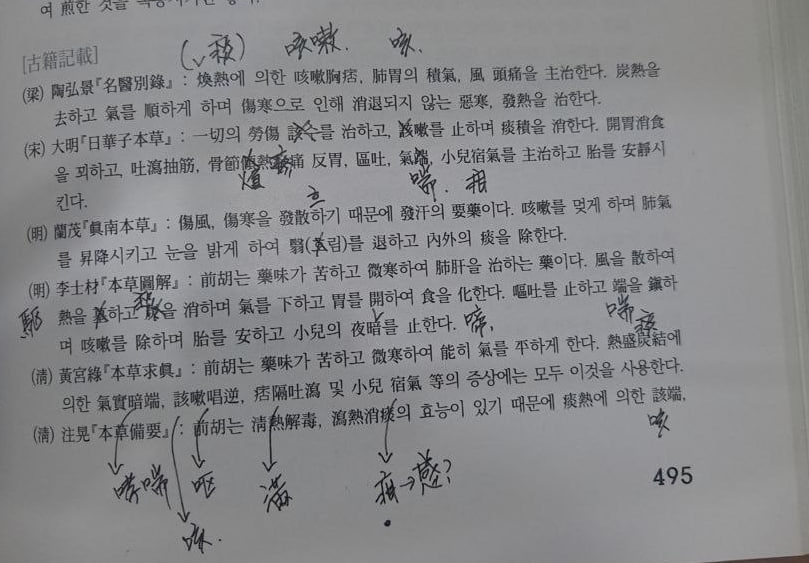 여 煎한 것을 복용시키면 좋다.
[古籍記載]
(痰) 咳嗽. 咳.
(梁) 陶弘景『名醫別錄』: 煥熱에 의한 咳嗽胸痞, 肺胃의 積氣, 風 頭痛을 主治한다. 炭熱을
去하고 氣를 順하게 하며 傷寒으로 인해 消退되지 않는 惡寒, 發熱을 治한다.
(宋) 大明『日華子本草』: 一切의 勞傷 該수를 治하고, 該嗽를 止하며 痰積을 消한다. 開胃消食
을 꾀하고, 吐瀉抽筋, 骨節 熱 痛 反胃, 區吐, 氣端, 小兒宿氣를 主治하고 胎를 安靜시
煩 喘. 疳
킨다.
흐
(明) 蘭茂『眞南本草』: 傷風, 傷寒을 發散하기 때문에 發汗의 要藥이다. 咳嗽를 멎게 하며 肺氣
를 昇降시키고 눈을 밝게 하여 翳( 림)를 退하고 內外의 痰을 除한다.
(明) 李士材『本草圖解』: 前胡는 藥味가 苦하고 微寒하여 肺肝을 治하는 藥이다. 風을 散하여
驅 熱을 하고 을 消하며 氣를 下하고 胃를 開하여 食을 化한다. 嘔吐를 止하고 端을 鎭하
며 咳嗽를 除하며 胎를 安하고 小兒의 夜暗를 止한다. 啼, 喘 痰
(淸) 黃宮綠『本草求眞』: 前胡는 藥味가 苦하고 微寒하여 能히 氣를 平하게 한다. 熱盛炭結에
의한 氣實暗端, 該嗽唱逆, 痞隔吐瀉 및 小兒 宿氣 等의 증상에는 모두 이것을 사용한다.
(淸) 注晃『本草備要』: 前胡는 淸熱解毒, 瀉熱消痰의 효능이 있기 때문에 痰熱에 의한 該端,
咳
哮喘 嘔 滿 疳→
咳.
495